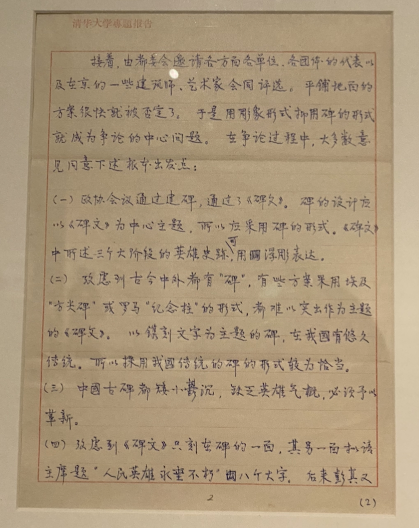 清华大学专题报告
接着，由都委会邀请各方面各单位、各团体的代表以
及在京的一些建筑师、艺术家会同评选。平铺地面的
方案很快就被否定了。于是用形象形式抑用碑的形式
就成为争论的中心问题。在争论过程中，大多数意
见同意下述报本出发点：
(一) 政协会议通过建碑，通过了《碑文》。碑的设计应
以《碑文》为中心主题，所以应采用碑的形式。《碑文》
中所述三个大阶段的英雄史跡，可用浮彫表达。
(二) 攷虑到古今中外都有“碑”，有些方案采用埃及
“方尖碑”或罗马“纪念柱”的形式，都难以突出作为主题
的《碑文》。以鐫刻文字为主题的碑，在我國有悠久
传统。所以採用我國传统的碑的形式较为恰当。
(三) 中國古碑都矮小鬱沉，缺乏英雄气概，必须予以
革新。
(四) 攷虑到《碑文》只刻在碑的一面，其另一面拟请
主席题“人民英雄永垂不朽”八个大字。后来彭真又
2
(2)